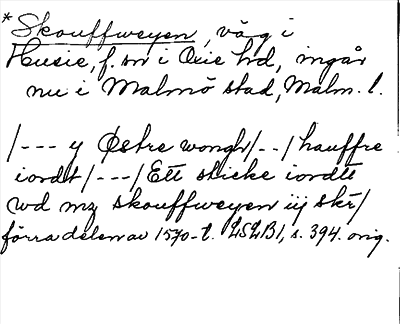 *Skouffweyen, väg i
Husie, f. sn i Oxie hd, ingår
nu i Malmö stad, Malm. l.
/--- y Østre wongh/--/hauffre
iordt/---/Ett sticke iordtt
wd mz skouffweyen iij skr/
förra delen av 1570-t. LSLB1, s. 394. orig.